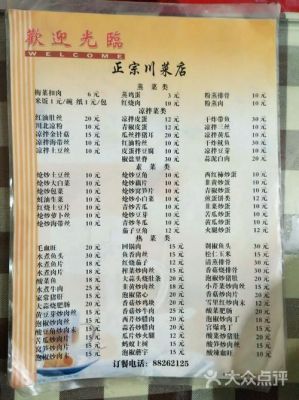 歡迎光臨
WELCOME
正宗川菜店
蒸菜类
梅菜扣肉 6元 蒸鸡蛋 3元 粉蒸排骨 10元
米饭1元/碗 纸1元/包 红烧肉 10元 粉蒸肉 10元
凉拌菜类
红油肚丝 20元 凉拌皮蛋 12元 干炸带鱼 30元
川北凉粉 10元 青椒皮蛋 12元 凉拌三丝 10元
凉拌金针菇 15元 瓜丝拌猪耳 20元 凉拌黄瓜 10元
凉拌海带丝 10元 红油粉丝 10元 干炸鱿鱼 30元
凉拌土豆丝 10元 皮蛋拌豆腐 10元 凉拌豆腐 10元
椒盐里脊 30元 蒜泥白肉 20元
素菜类
炝炒土豆丝 10元 炝炒豆角 10元 西红柿炒蛋 10元
炝炒大白菜 10元 炝炒藕片 10元 韭菜炒蛋 10元
炝炒包菜 10元 炝炒莴笋片 10元 火腿炒蛋 10元
蚝油生菜 10元 炝炒小白菜 10元 煎蛋饼 12元
红烧土豆片 10元 炝炒油麦菜 10元 煎蛋 12元
炝炒萝卜丝 10元 青炒冬瓜 10元 苦瓜炒蛋 12元
炝炒海带丝 10元 干煸豆角 12元 木耳炒蛋 12元
热菜类
毛血旺 20元 回锅肉 15元 剁椒鱼头 30元
水煮鱼头 30元 鱼香肉丝 15元 松仁玉米 15元
水煮鱼片 18元 烧茄子 12元 清蒸排骨 30元
水煮肉片 18元 榨菜炒肉丝 12元 香菇烧排骨 30元
酸菜鱼 18元 大蒜头烧排条 30元 泡椒炒肉丝 15元
水煮牛肉 25元 韭黄炒肉丝 12元 蒜苔炒肉丝 15元
家常猪肝 15元 芹菜炒肉丝 12元 小青菜炒肉丝 15元
大蒜烧肥肠 30元 香菇炒鸡块 12元 雪里红炒肉末 12元
黄豆芽炒肉丝 15元 香菇炒牛肉 25元 酸菜肥肠 20元
泡椒炒肉丝 15元 蒜苔炒腊肉 20元 泡椒炒肉丁 15元
酸豆角炒肉末 15元 莴笋炒腊肉 20元 宫爆鸡丁 15元
苦瓜炒肉片 15元 瓜片炒火腿 12元 酸笋炒肉丝 15元
莴笋炒肉片 15元 蚂蚁上树 15元 酸菜炒肉丝 15元
泡椒炒肉末 15元 泡椒蘑芋 15元 酸辣鱿旺 10元
订餐电话：88262125
大众点评